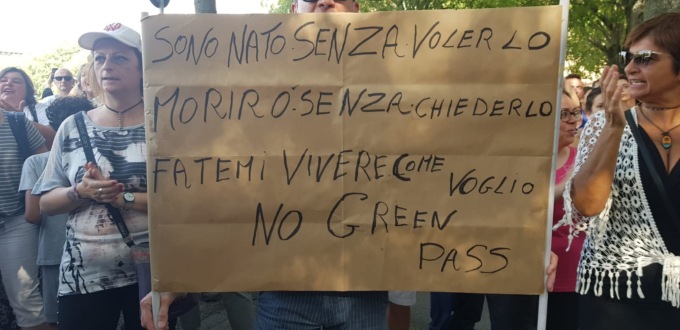 SONO NATO·SENZA·VOLERLO
MORIRO'·SENZA·CHIEDERLO
FATEMI VIVERE COME VOGLIO
NO GREEN
PASS